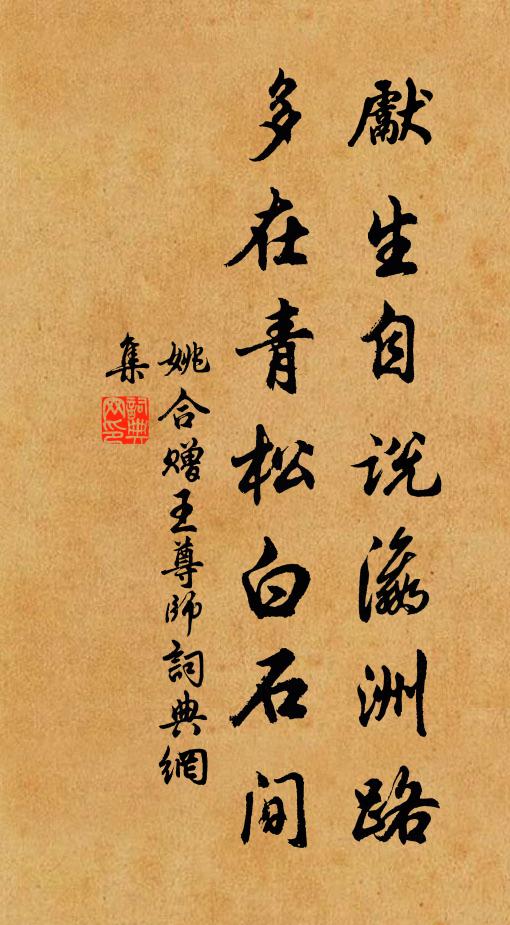 獻生自说瀛洲路
多在青松白石间
姚合赠王尊師詞典網
集
詞典網印